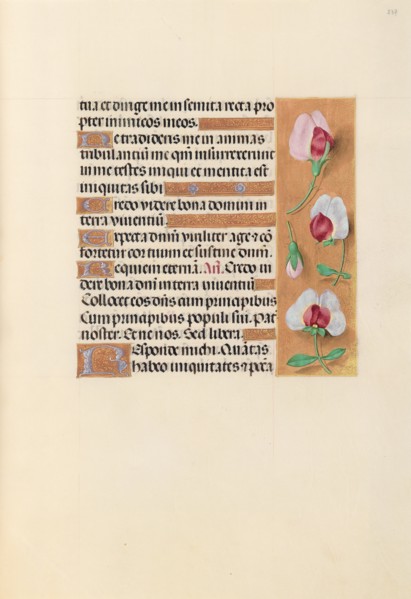 tua et dirige me in semita recta pro
pter inimicos meos.
Ne tradideris me in animas
tribulantiū me qm̄ insurrexerunt
in me testes iniqui et mentita est
iniquitas sibi
Credo videre bona domini in
terra viventiū
Expecta dn̄m viriliter age ⁊ cō
fortetur cor tuum et sustine dnm̄.
Requiem eternā. An̄. Credo vi
dere bona dn̄i in terra viventiū
Collocet eos dn̄s cum principibus
Cum principibus populi sui. Pat̄
noster. Et ne nos. Sed libera
Responde michi. Quātas
habeo iniquitates ⁊ pecca